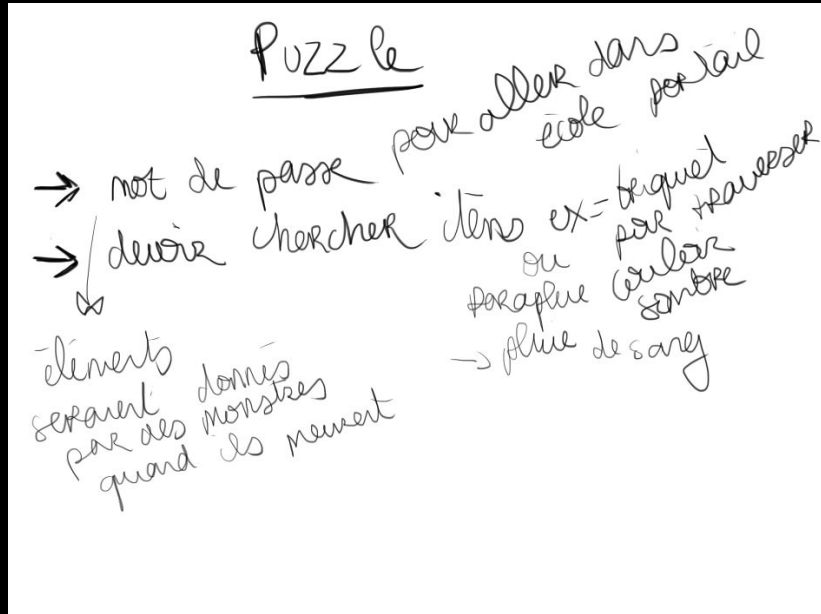 Puzzle
→ mot de passe pour aller dans
école portail
→ devoir chercher items ex = briquet
pour traverser
couloir
sombre
ou
parapluie
→ pluie de sang
éléments
seraient donnés
par des monstres
quand ils meurent